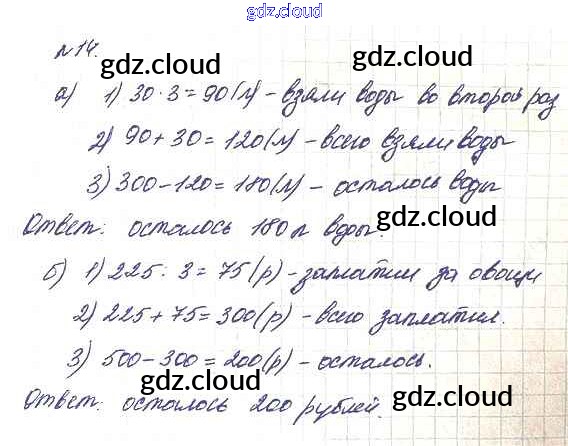 gdz.cloud
№14.
gdz.cloud gdz.cloud
а) 1) 30·3=90(л) - взяли воды во второй раз
gdz.cloud
2) 90+30=120(л) - всего взяли воды
3) 300-120=180(л) - осталось воды
gdz.cloud
Ответ: осталось 180 л воды.
gdz.cloud
б) 1) 225 : 3=75(р) - заплатил за овощи
gdz.cloud
2) 225+75=300(р) - всего заплатил.
gdz.cloud
3) 500-300=200(р) - осталось.
gdz.cloud
Ответ: осталось 200 рублей.
gdz.cloud